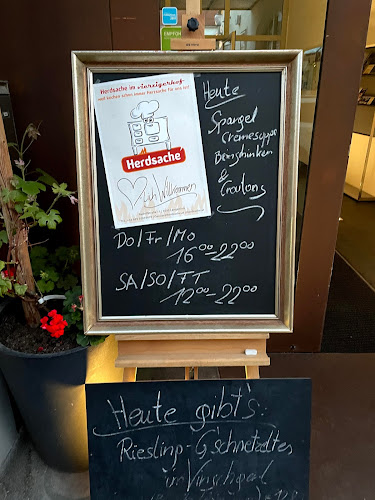 EMPFOH
Herdsache im vierzigerhof
Herdsache
Herzlich Willkommen
Heute
Spargel
Cremesuppe
Beinschinken
&
Croutons
Do/Fr/Mo
16⁰⁰-22⁰⁰
SA/SO/FT
12⁰⁰-22⁰⁰
Heute gibt's:
Riesling-G'schnetzeltes
im Vinschgerl